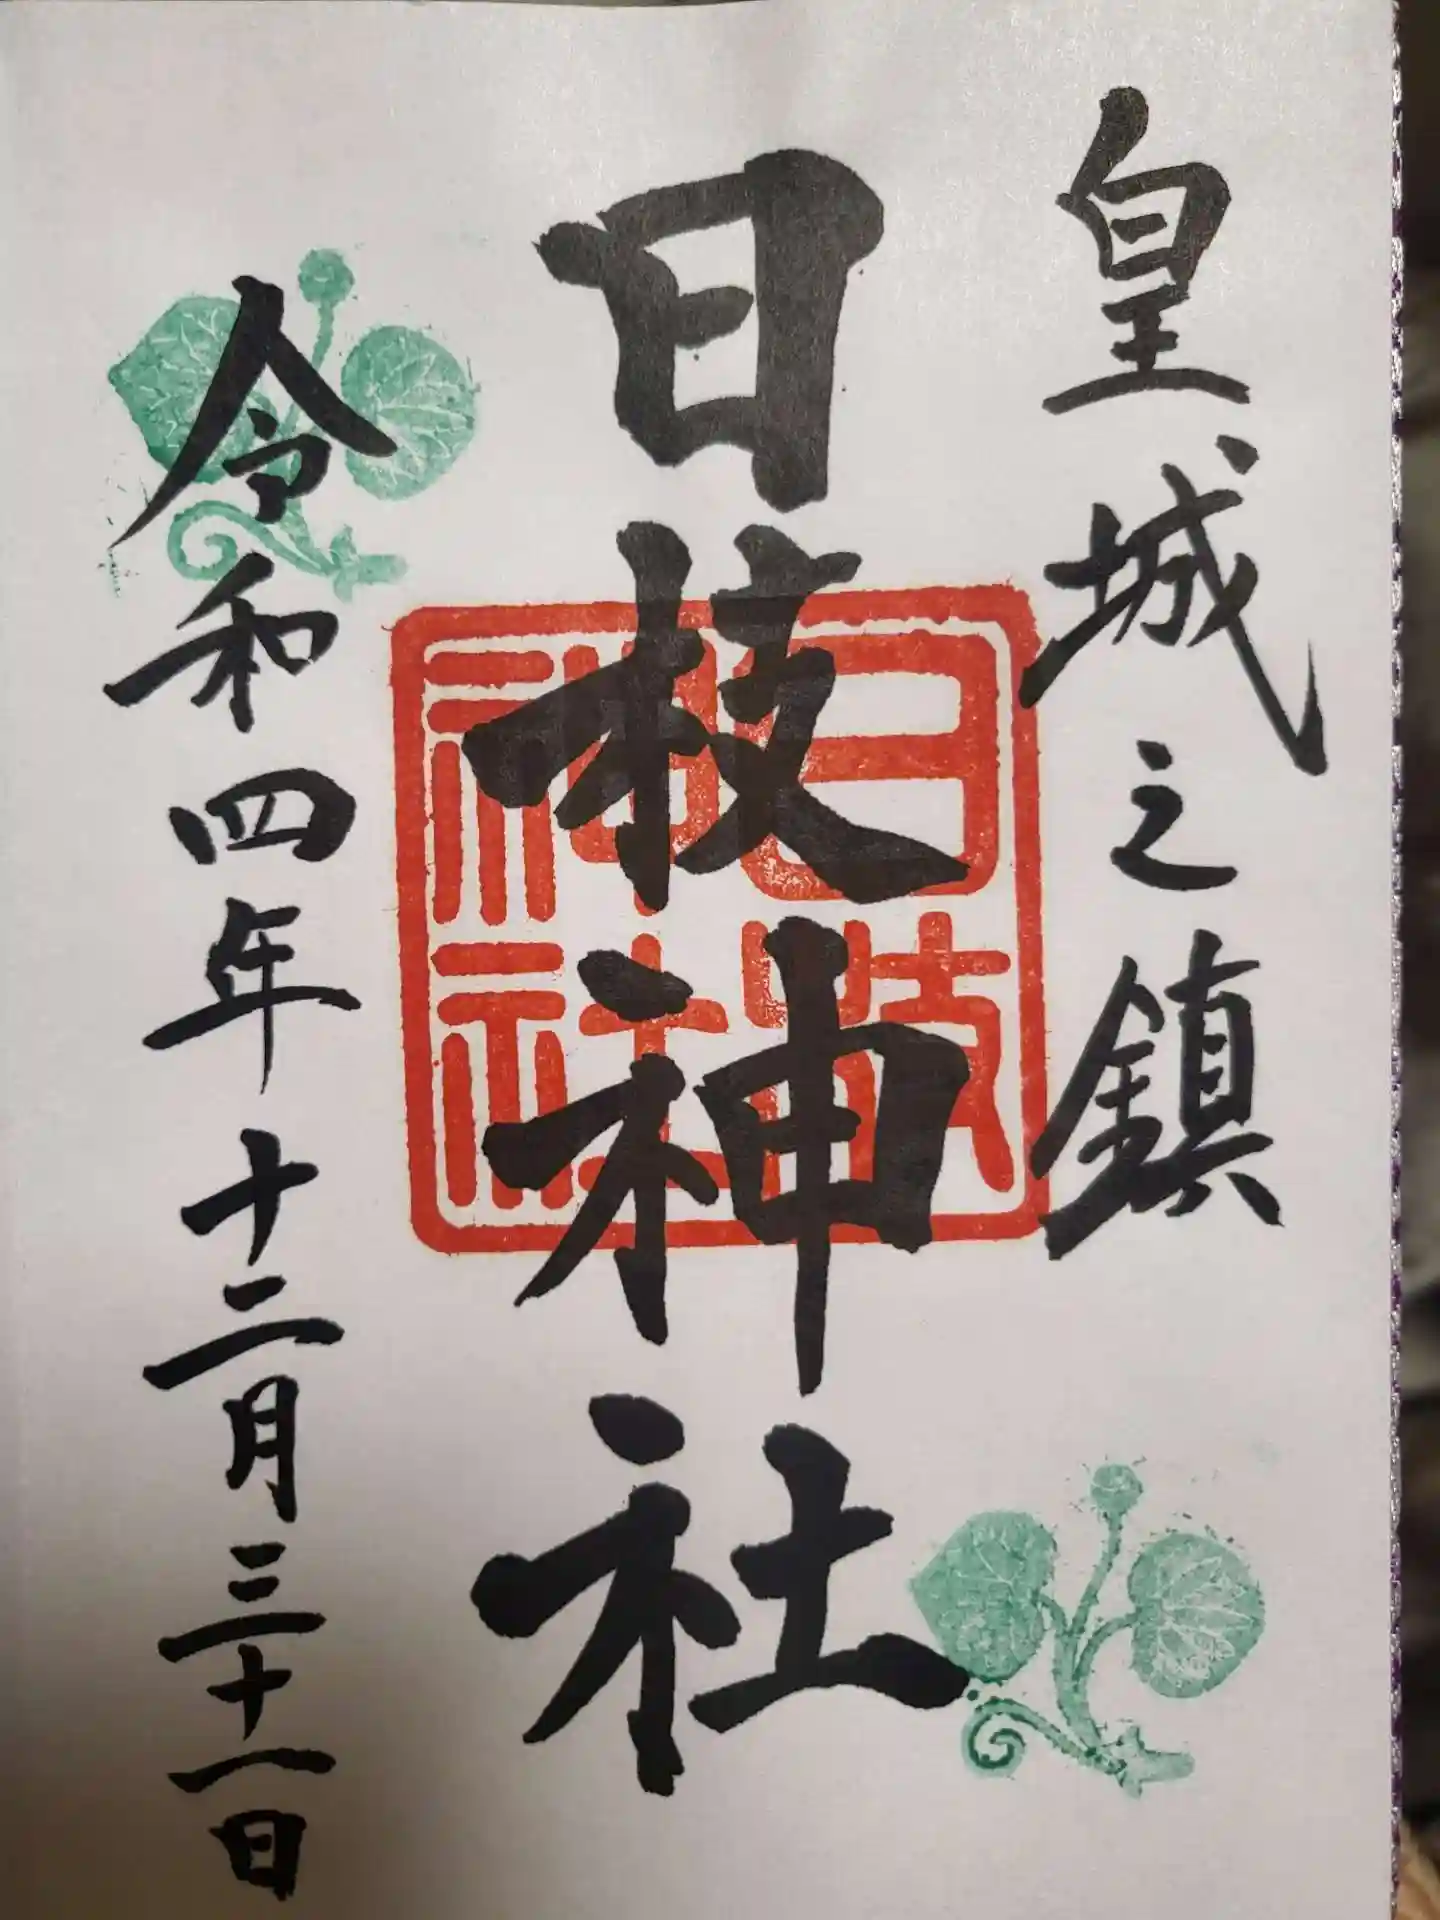 皇城之鎮
日枝神社
日枝神社
令和四年十二月三十一日